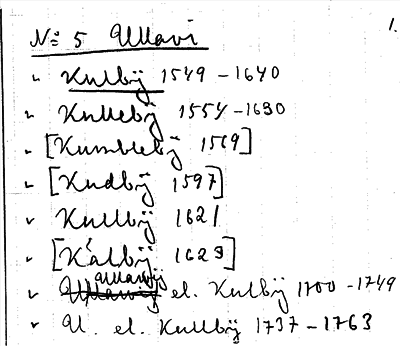 1.
No 5 Ullavi
" Kullbÿ 1549 – 1640
" Kullebÿ 1554 – 1630
" [Kumblebÿ 1569]
" [Kudbÿ 1597]
" Kullbÿ 1621
" [Kålbÿ 1623]
" Ullavij el. Kulbÿ 1700 – 1749
" U. el. Kullbÿ 1737 – 1763